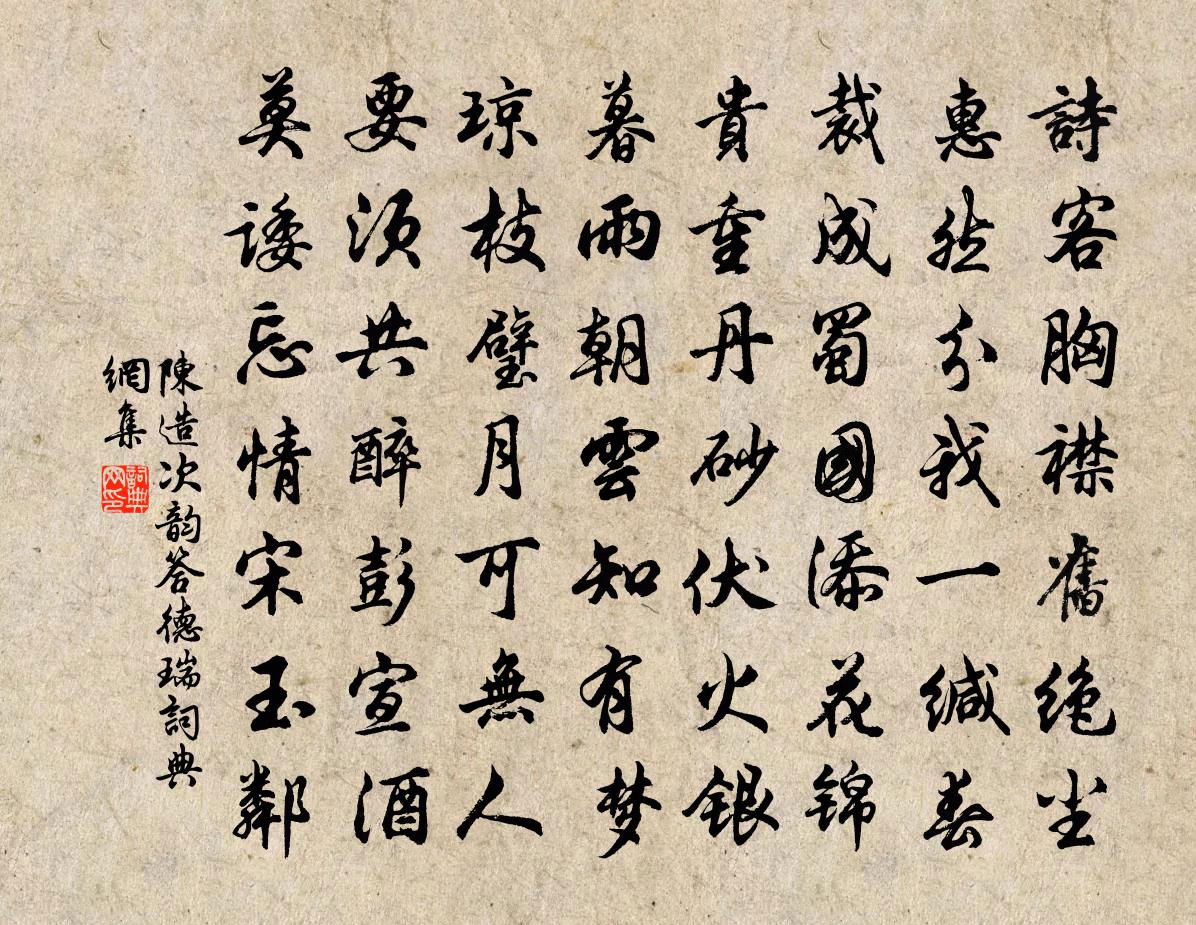 詩客胸襟舊絶尘
惠然分我一緘春
裁成蜀國添花錦
貴重丹砂伏火銀
暮雨朝雲知有梦
琼枝璧月可無人
要須共醉彭宣酒
莫諉忘情宋玉鄰
陳造次韵答德瑞詞典
網集
詞典
网印